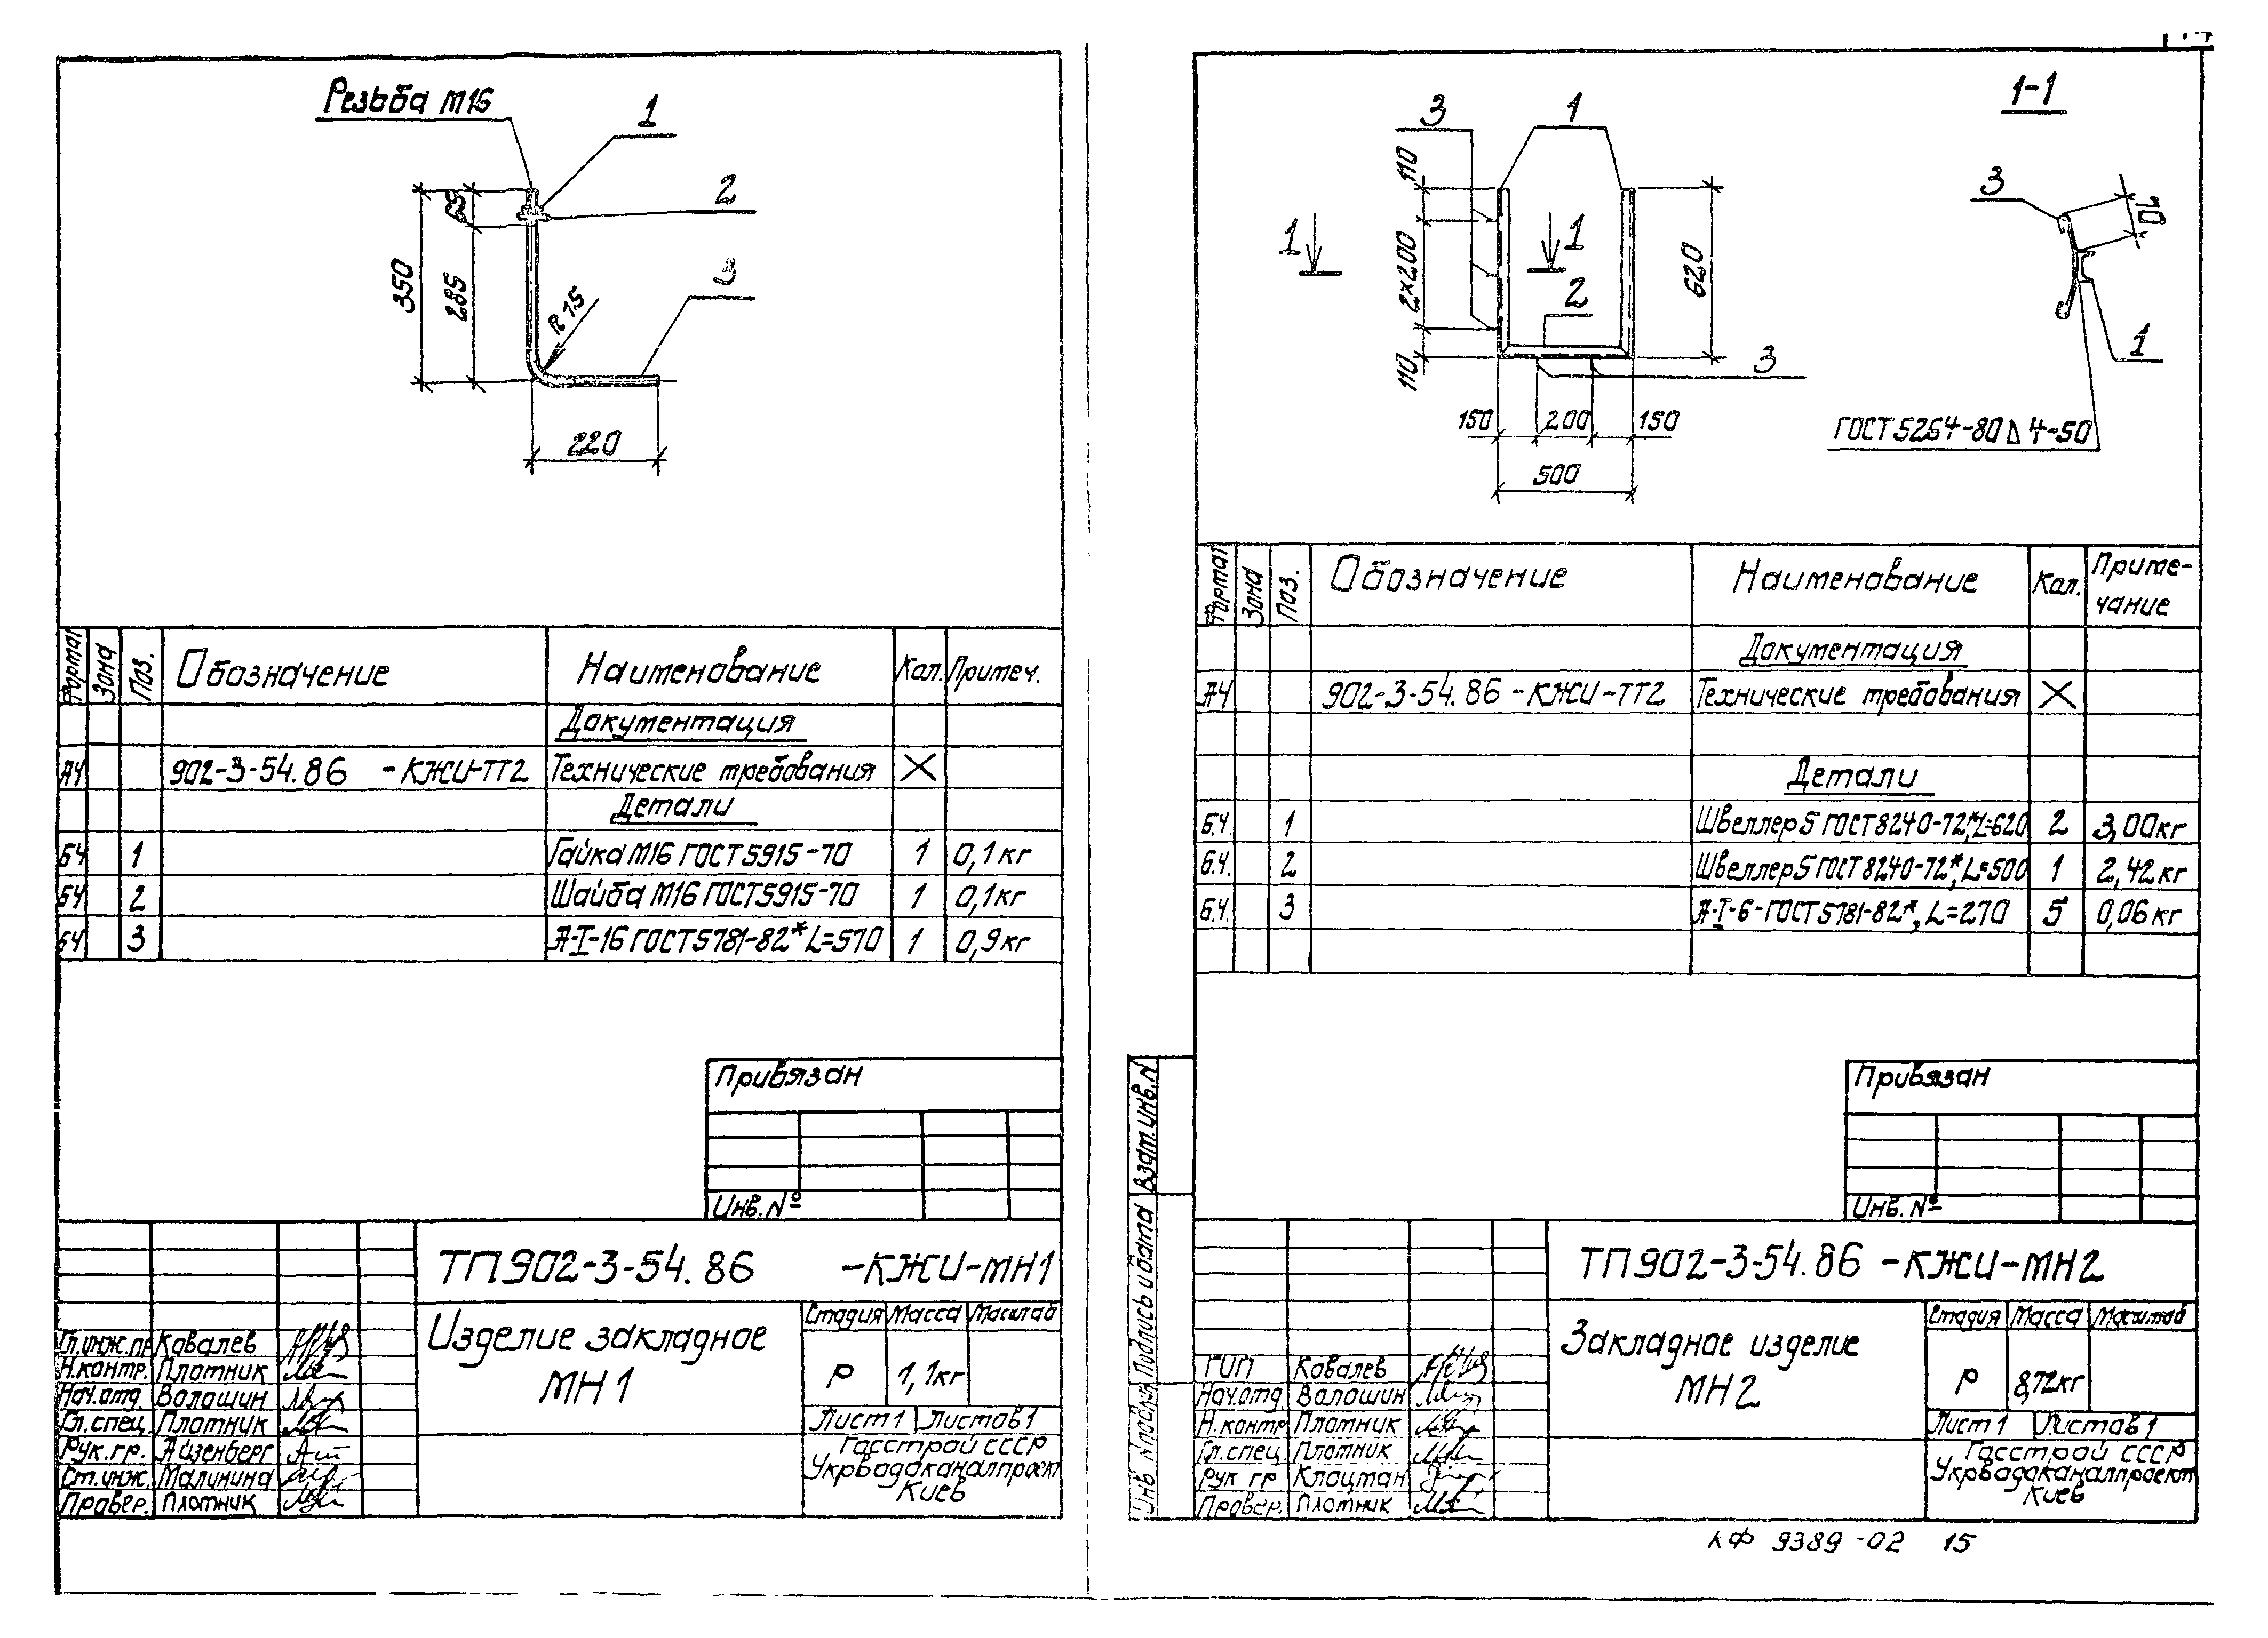 Резьба М16
1
2
3
350
65
285
R 75
220
Формат Зона Поз. Обозначение Наименование Кол. Примеч.
Документация
А4 902-3-54.86 -КЖИ-ТТ2 Технические требования X
Детали
БЧ 1 Гайка М16 ГОСТ 5915-70 1 0,1 кг
БЧ 2 Шайба М16 ГОСТ 5915-70 1 0,1 кг
БЧ 3 А-I-16 ГОСТ 5781-82* L=570 1 0,9 кг
Привязан
Инв. №
ТП 902-3-54.86 -КЖИ-МН1
Изделие закладное
МН1
Стадия Масса Масштаб
Р 1,1кг
Лист 1 Листов 1
Госстрой СССР
Укрводоканалпроект
Киев
Гл.инж.пр Ковалев
Н.контр. Плотник
Нач.отд. Волошин
Гл.спец. Плотник
Рук.гр. Айзенберг
Ст.инж. Малинина
Провер. Плотник
1-1
3
1
110
2×200
110
1
1
2
620
3
150 200 150
500
3
70
1
ГОСТ 5264-80 ⊿ 4-50
Формат Зона Поз. Обозначение Наименование Кол. Приме-
чание
Документация
А4 902-3-54.86 -КЖИ-ТТ2 Технические требования X
Детали
Б.Ч. 1 Швеллер 5 ГОСТ 8240-72*, L=620 2 3,00кг
Б.Ч. 2 Швеллер 5 ГОСТ 8240-72*, L=500 1 2,42кг
Б.Ч. 3 А-I-6-ГОСТ 5781-82*, L=270 5 0,06 кг
Привязан
Инв. №
Взам.инв.N
Подпись и дата
Инв N подлин
ТП 902-3-54.86 -КЖИ-МН2
Закладное изделие
МН2
Стадия Масса Масштаб
Р 8,72кг
Лист 1 Листов 1
Госстрой СССР
Укрводоканалпроект
Киев
ГИП Ковалев
Нач.отд. Волошин
Н.контр Плотник
Гл.спец. Плотник
Рук гр Клоцман
Провер. Плотник
КФ 9389-02 15